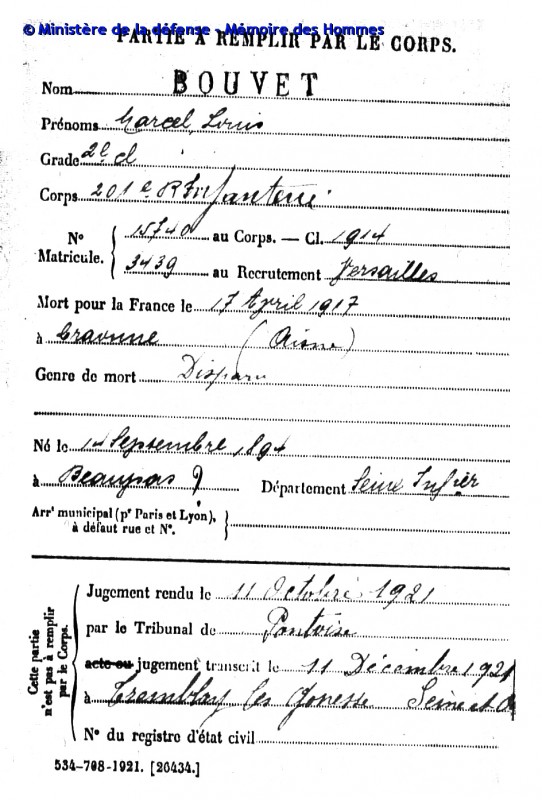 © Ministère de la défense - Mémoire des Hommes
PARTIE À REMPLIR PAR LE CORPS.
Nom BOUVET
Prénoms Marcel, Louis
Grade 2e cl
Corps 201e R Infanterie
No Matricule. 15740 au Corps. — Cl. 1914
3439 au Recrutement Versailles
Mort pour la France le 17 April 1917
à Craonne (Aisne)
Genre de mort Disparu
Né le 14 Septembre 1894
à Département Seine Infier
Arrt municipal (pr Paris et Lyon),
à défaut rue et No.
Cette partie
n'est pas à remplir
par le Corps.
Jugement rendu le 11 Octobre 1921
par le Tribunal de Pontoise
acte ou jugement transcrit le 11 Décembre 1921
à Tremblay les Gonesse Seine et O
No du registre d'état civil
534-708-1921. [26434.]